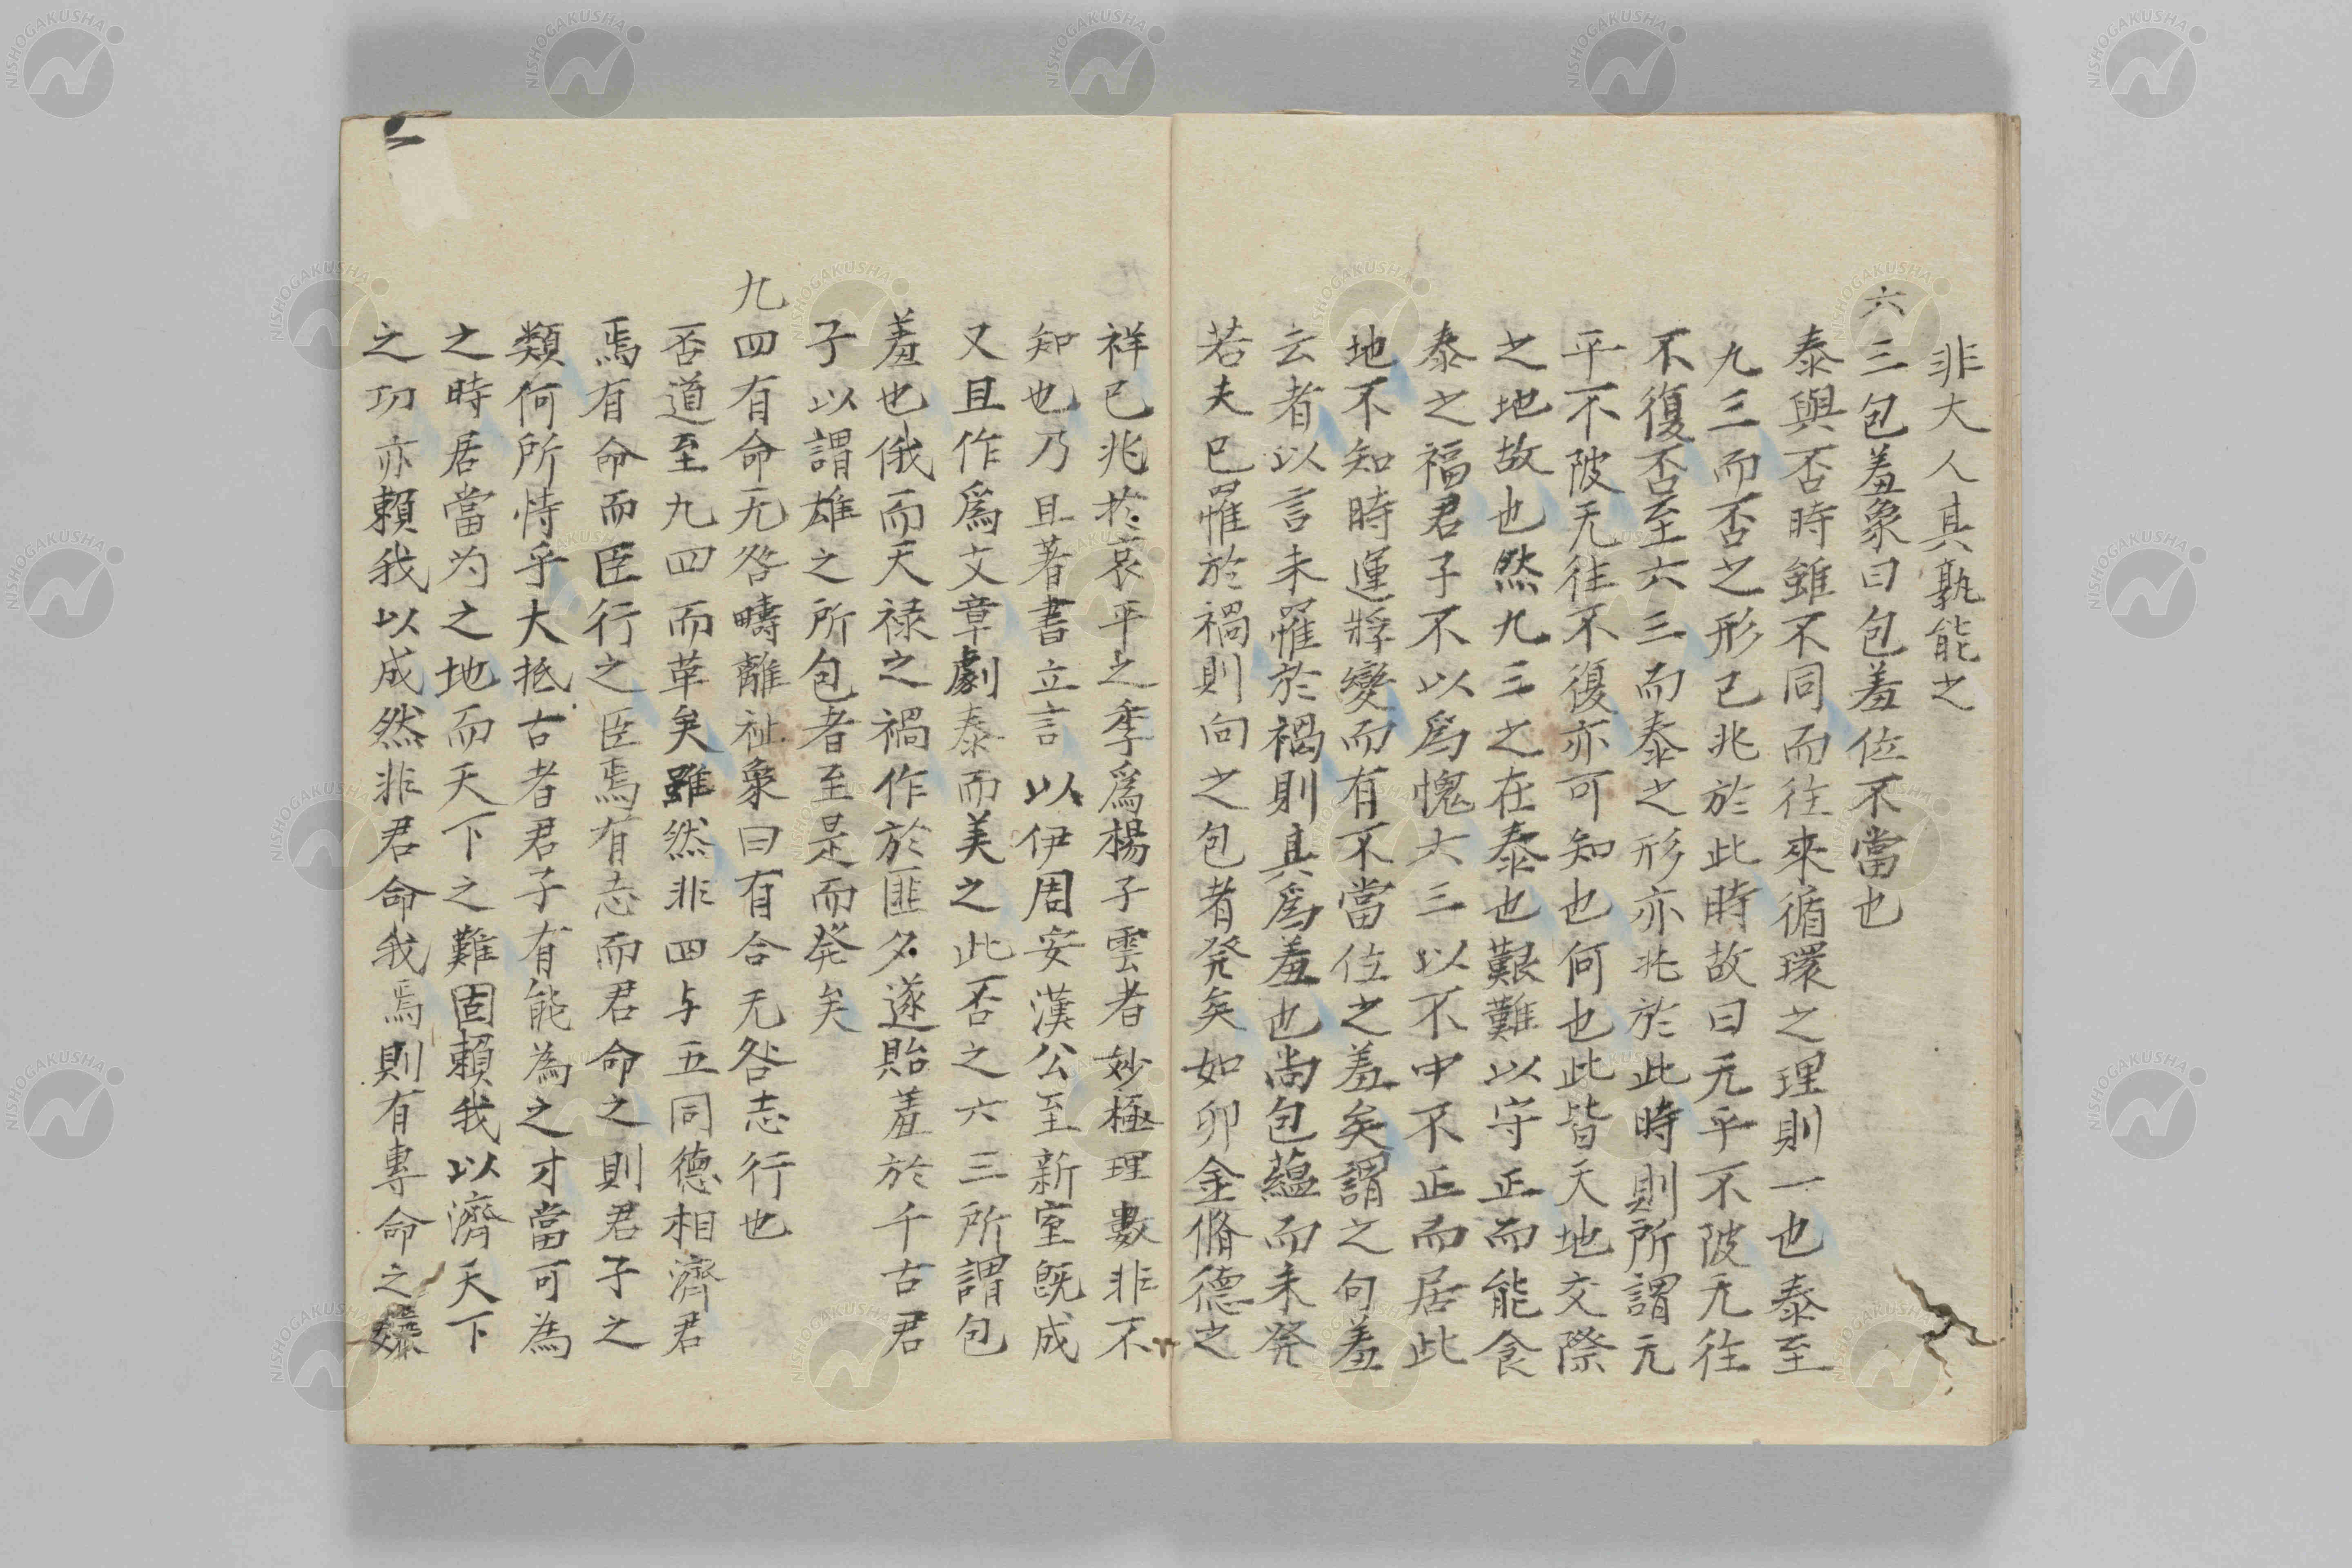 非大人其孰能之
六三包羞象曰包羞位不當也
泰與否時雖不同而往來循環之理則一也泰至
九三而否之形已兆於此時故曰无平不陂无往
不復否至六三而泰之形亦兆於此時則所謂无
平不陂无往不復亦可知也何也此皆天地交際
之地故也然九三之在泰也艱難以守正而能食
泰之福君子不以爲愧六三以不中不正而居此
地不知時運將變而有不當位之羞矣謂之句羞
云者以言未罹於禍則其爲羞也尚包蘊而未発
若夫已罹於禍則向之包者発矣如卯金脩德之
祥已兆於哀平之季爲楊子雲者妙極理數非不
知也乃且著書立言以伊周安漢公至新室既成
又且作爲文章劇泰而美之此否之六三所謂包
羞也俄而天禄之禍作於匪夕遂貽羞於千古君
子以謂雄之所包者至是而発矣
九四有命无咎疇離祉象曰有命无咎志行也
否道至九四而革矣雖然非四与五同德相濟君
焉有命而臣行之臣焉有志而君命之則君子之
類何所恃乎大抵古者君子有能為之才當可為
之時居當为之地而天下之難固賴我以濟天下
之功亦賴我以成然非君命我焉則有專命之嫌
NISHOGAKUSHA